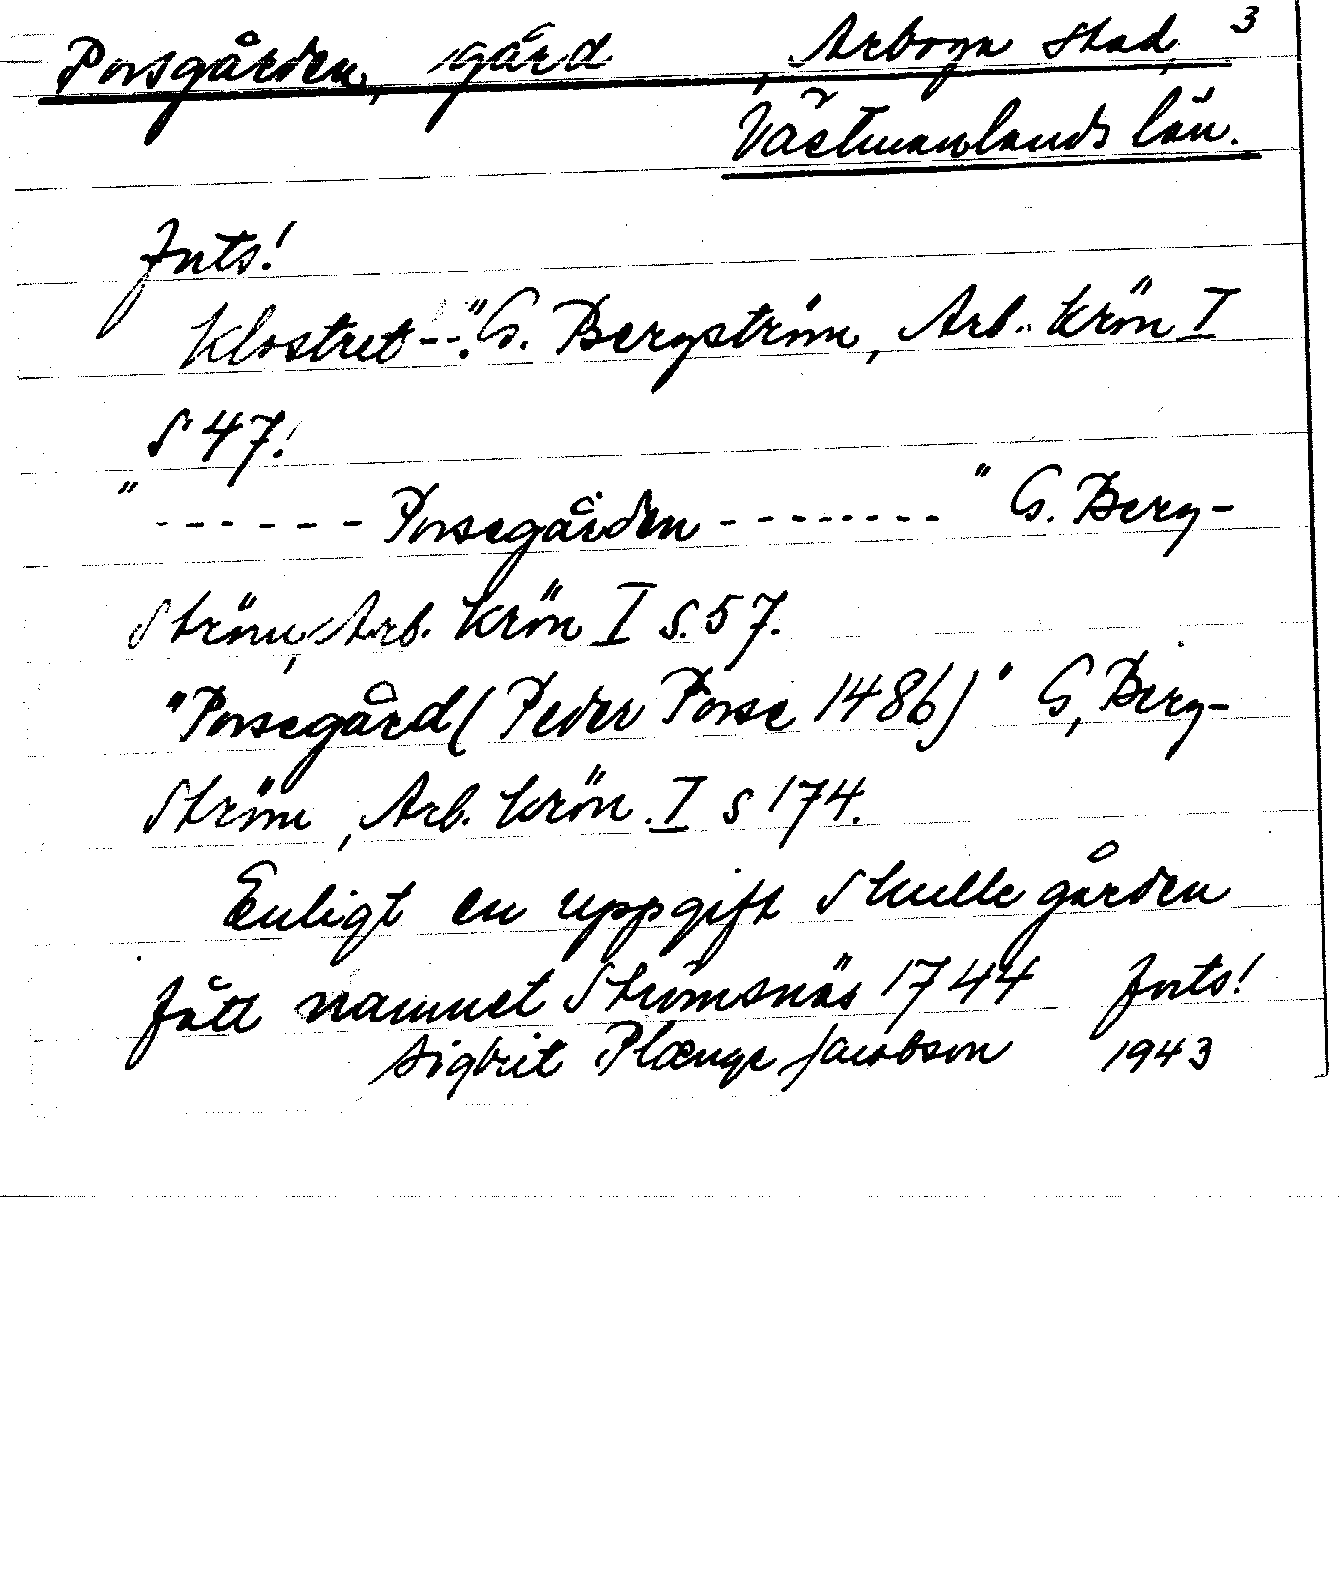 Porsgården, gård , Arboga stad, 3
Västmanlands län.
Forts!
Klostret --". G. Bergström, Arb. krön I
S 47!
" - - - - - - Porsegården - - - - - - - - " G. Berg-
ström, Arb. krön I S. 57.
"Porsegård (Peder Porse 1486)" G. Berg-
ström, Arb. krön. I s 174.
Enligt en uppgift skulle gården
fått namnet Strömsnäs 1744 Forts!
Sigbrit Plænge Jacobson 1943